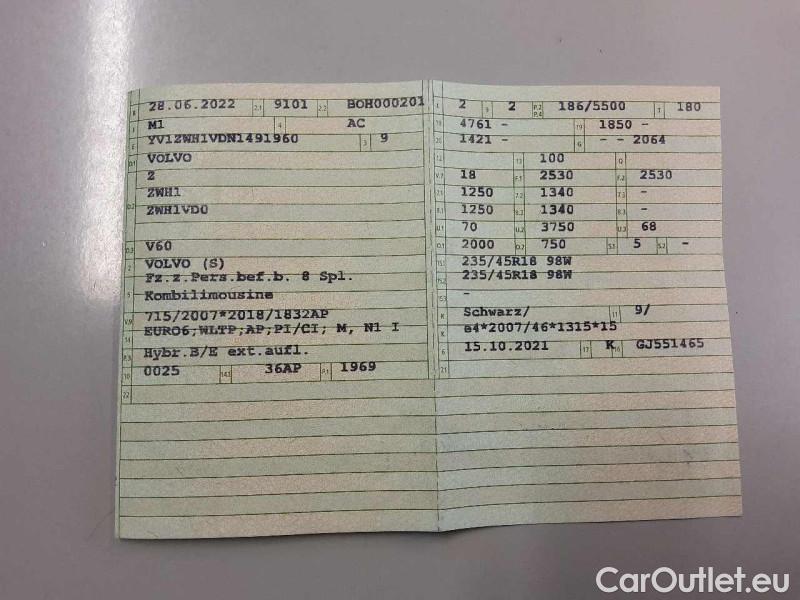 B 28.06.2022 2.1 9101 2.2 BOH000201
J M1 4 AC
E YV1ZWH1VDN1491960 3 9
D.1 VOLVO
Z
D.2 ZWH1
ZWH1VD0
D.3 V60
2 VOLVO (S)
5 Fz.z.Pers.bef.b. 8 Spl.
Kombilimousine
V.9 715/2007*2018/1832AP
14 EURO6;WLTP;AP;PI/CI; M, N1 I
P.3 Hybr.B/E ext.aufl.
10 0025 14.1 36AP P.1 1969
22
L 2 9 2 P.2 P.4 186/5500 T 180
18 4761 - 19 1850 -
20 1421 - G - - 2064
12 13 100 Q
V.7 18 F.1 2530 F.2 2530
7.1 1250 7.2 1340 7.3 -
8.1 1250 8.2 1340 8.3 -
U.1 70 U.2 3750 U.3 68
O.1 2000 O.2 750 S.1 5 S.2 -
15.1 235/45R18 98W
15.2 235/45R18 98W
15.3 -
R Schwarz/ 11 9/
K e4*2007/46*1315*15
6 15.10.2021 17 K 16 GJ551465
21
CarOutlet.eu